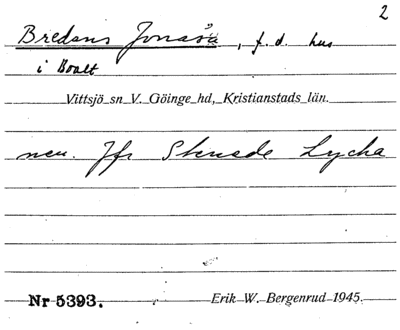 2
Bredans Jonasa, f.d. hus
i Boalt
Vittsjö sn V. Göinge hd, Kristianstads län.
neu. Jfr Skruede Lycka
Nr 5393. Erik W. Bergenrud 1945.